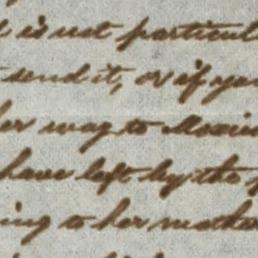 is not particul
send it, or if you
her way to Mexic
have left by the
ing to her mother